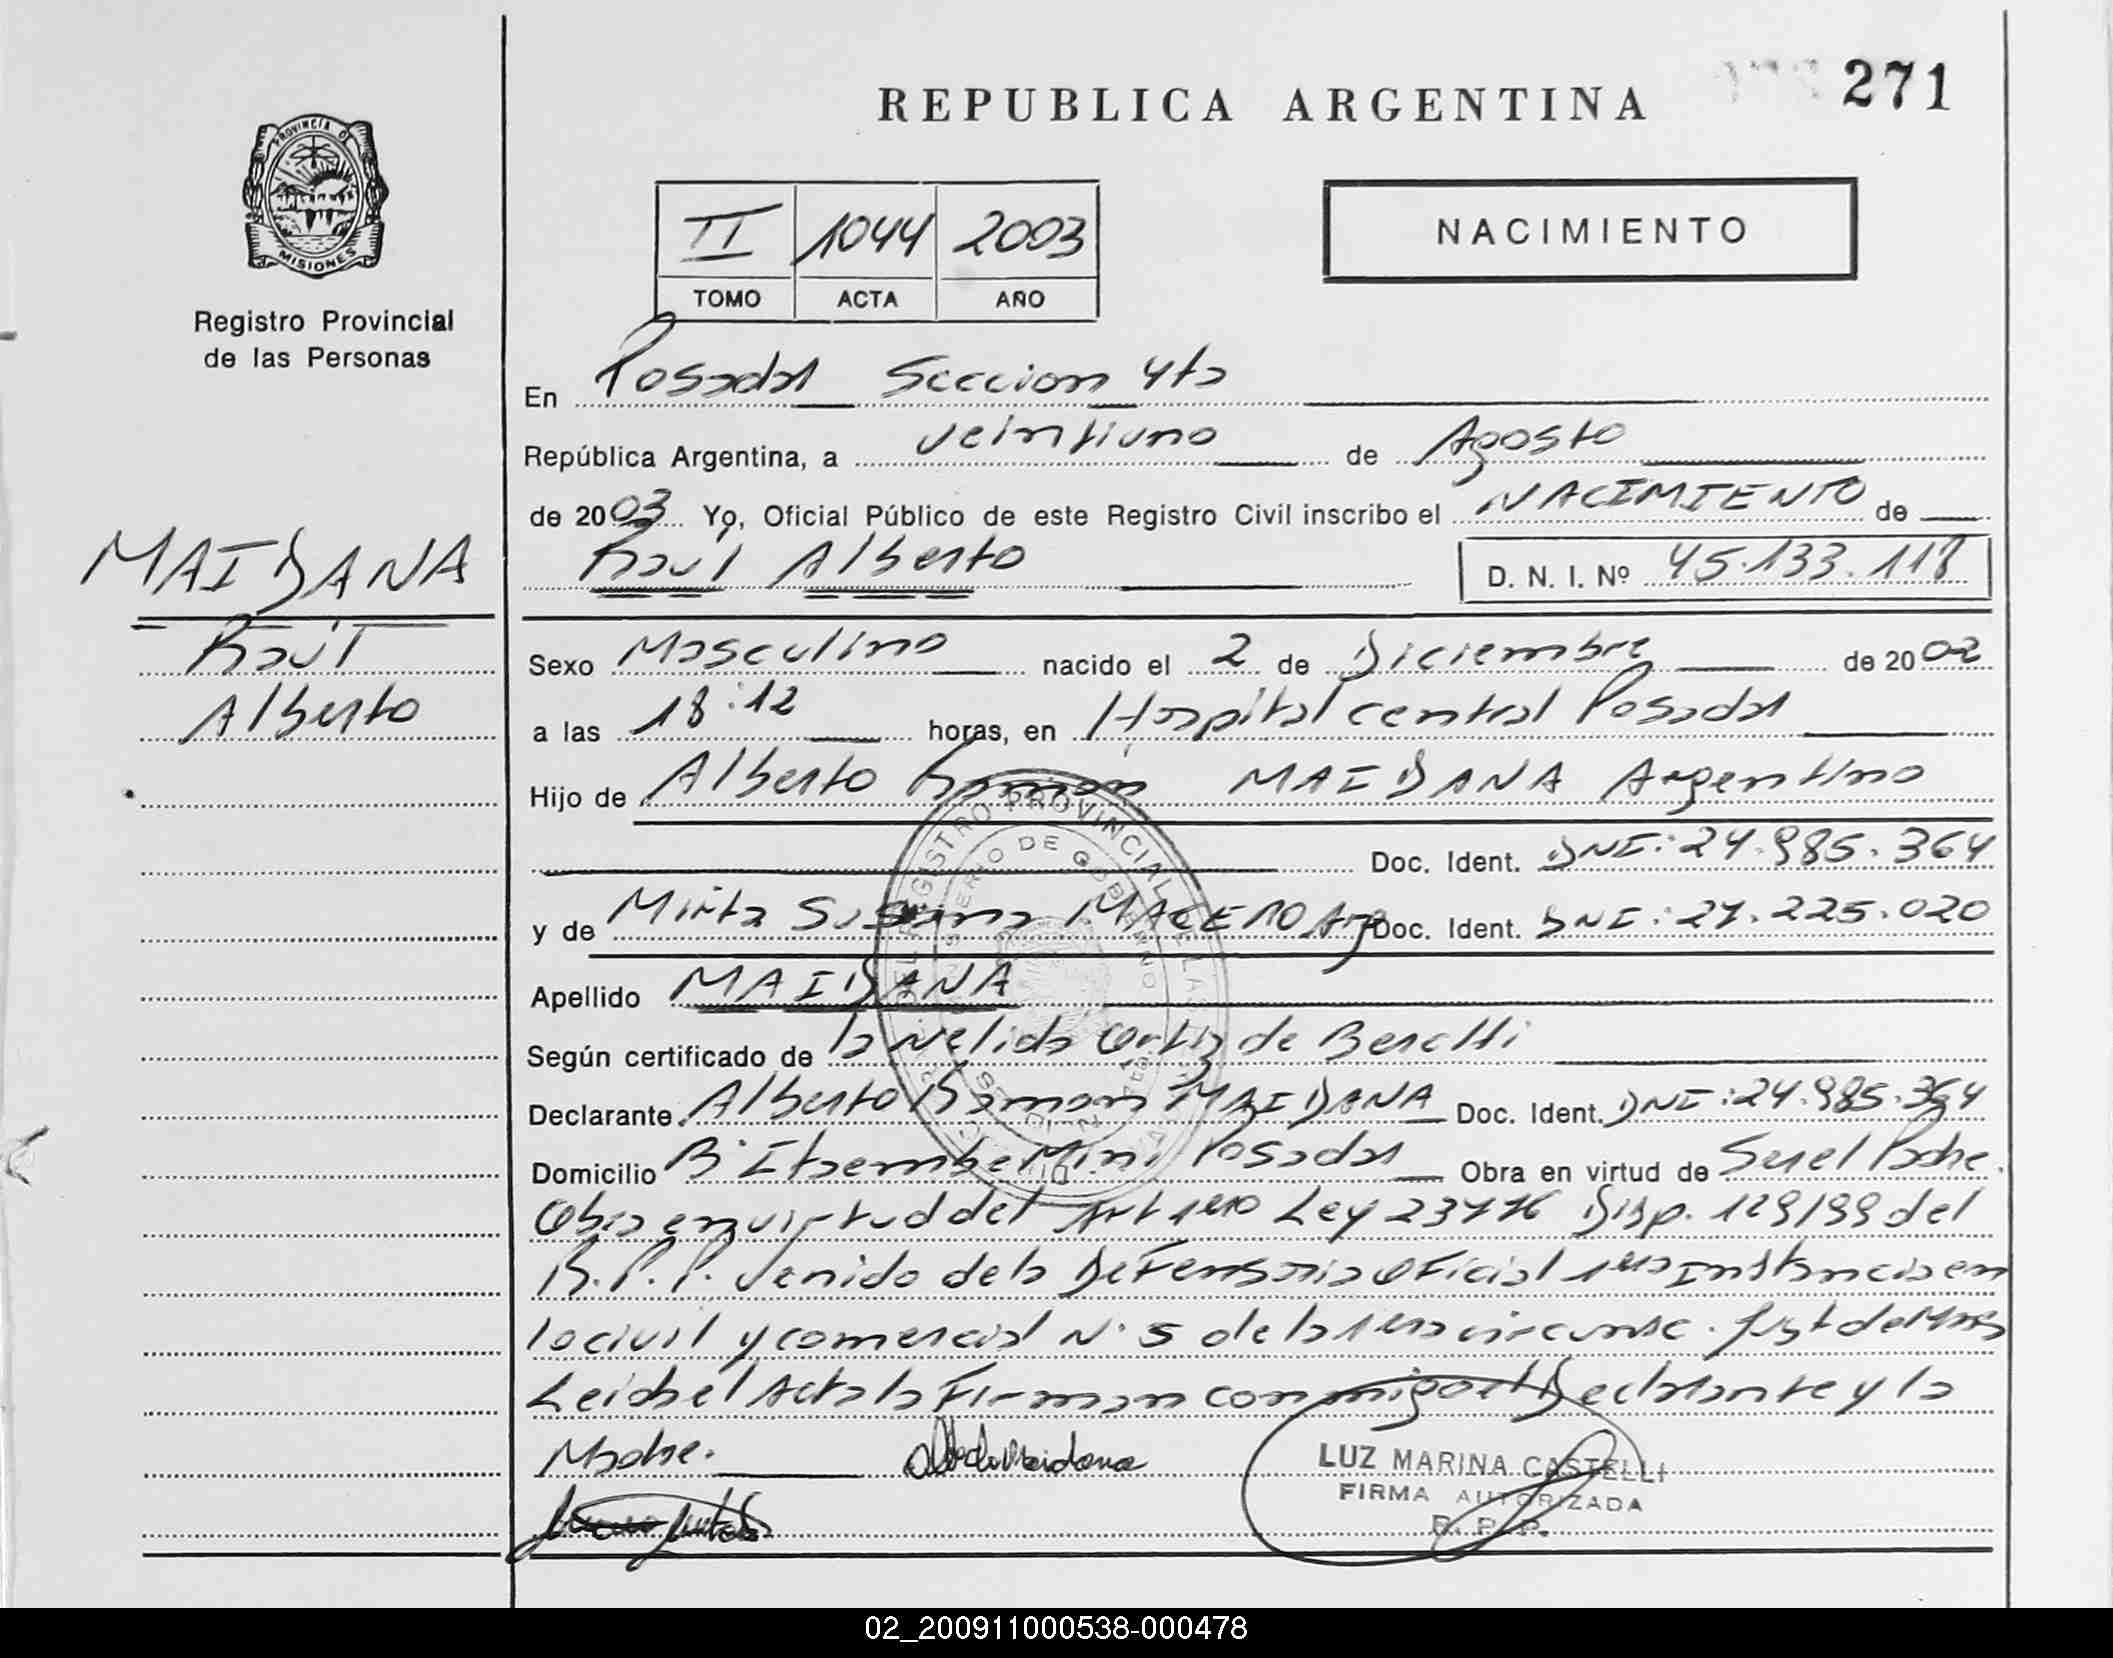 271
REPUBLICA ARGENTINA
PROVINCIA DE
MISIONES
Registro Provincial
de las Personas
II 1044 2003
TOMO ACTA AÑO
NACIMIENTO
En Posadas Seccion 4ta
República Argentina, a veintiuno de Agosto
de 2003 Yo, Oficial Público de este Registro Civil inscribo el NACIMIENTO de
Raul Alberto D. N. I. Nº 45.133.118
MAIDANA
Raul
Alberto
Sexo Masculino nacido el 2 de Diciembre de 2002
a las 18:12 horas, en Hospital central Posadas
Hijo de Alberto Ramon MAIDANA Argentino
Doc. Ident. DNI: 24.985.364
y de Mirta Susana Arg Doc. Ident. DNI: 27.225.020
Apellido MAIDANA
Según certificado de la Nelida Ortiz de
Declarante Alberto Ramon MAIDANA Doc. Ident. DNI: 24.985.364
Domicilio B° Itaembe Mini Posadas Obra en virtud de Ser el Padre.
Obra en virtud del Art 1ero Ley 23776 Disp. 129/99 del
R.P.P. Venido de la Defensoria Oficial 1era Instancia en
lo civil y comercial N° 5 de la 1era circunsc. Just de Mnes
Leida el Acta la Firman conmigo el Declarante y la
Madre.
LUZ MARINA CASTELLI
FIRMA AUTORIZADA
R. P. P.
02_200911000538-000478